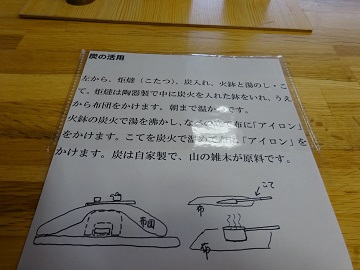 炭の活用
左から、炬燵(こたつ)、炭入れ、火鉢と湯のし・こ
て。炬燵は陶器製で中に炭火を入れた鉢をいれ、うえ
から布団をかけます。朝まで温かです。
火鉢の炭火で湯を沸かし、な 布に「アイロン」
をかけます。こてを炭火で温めて布に「アイロン」を
かけます。炭は自家製で、山の雑木が原料です。
こて
布
布団
布